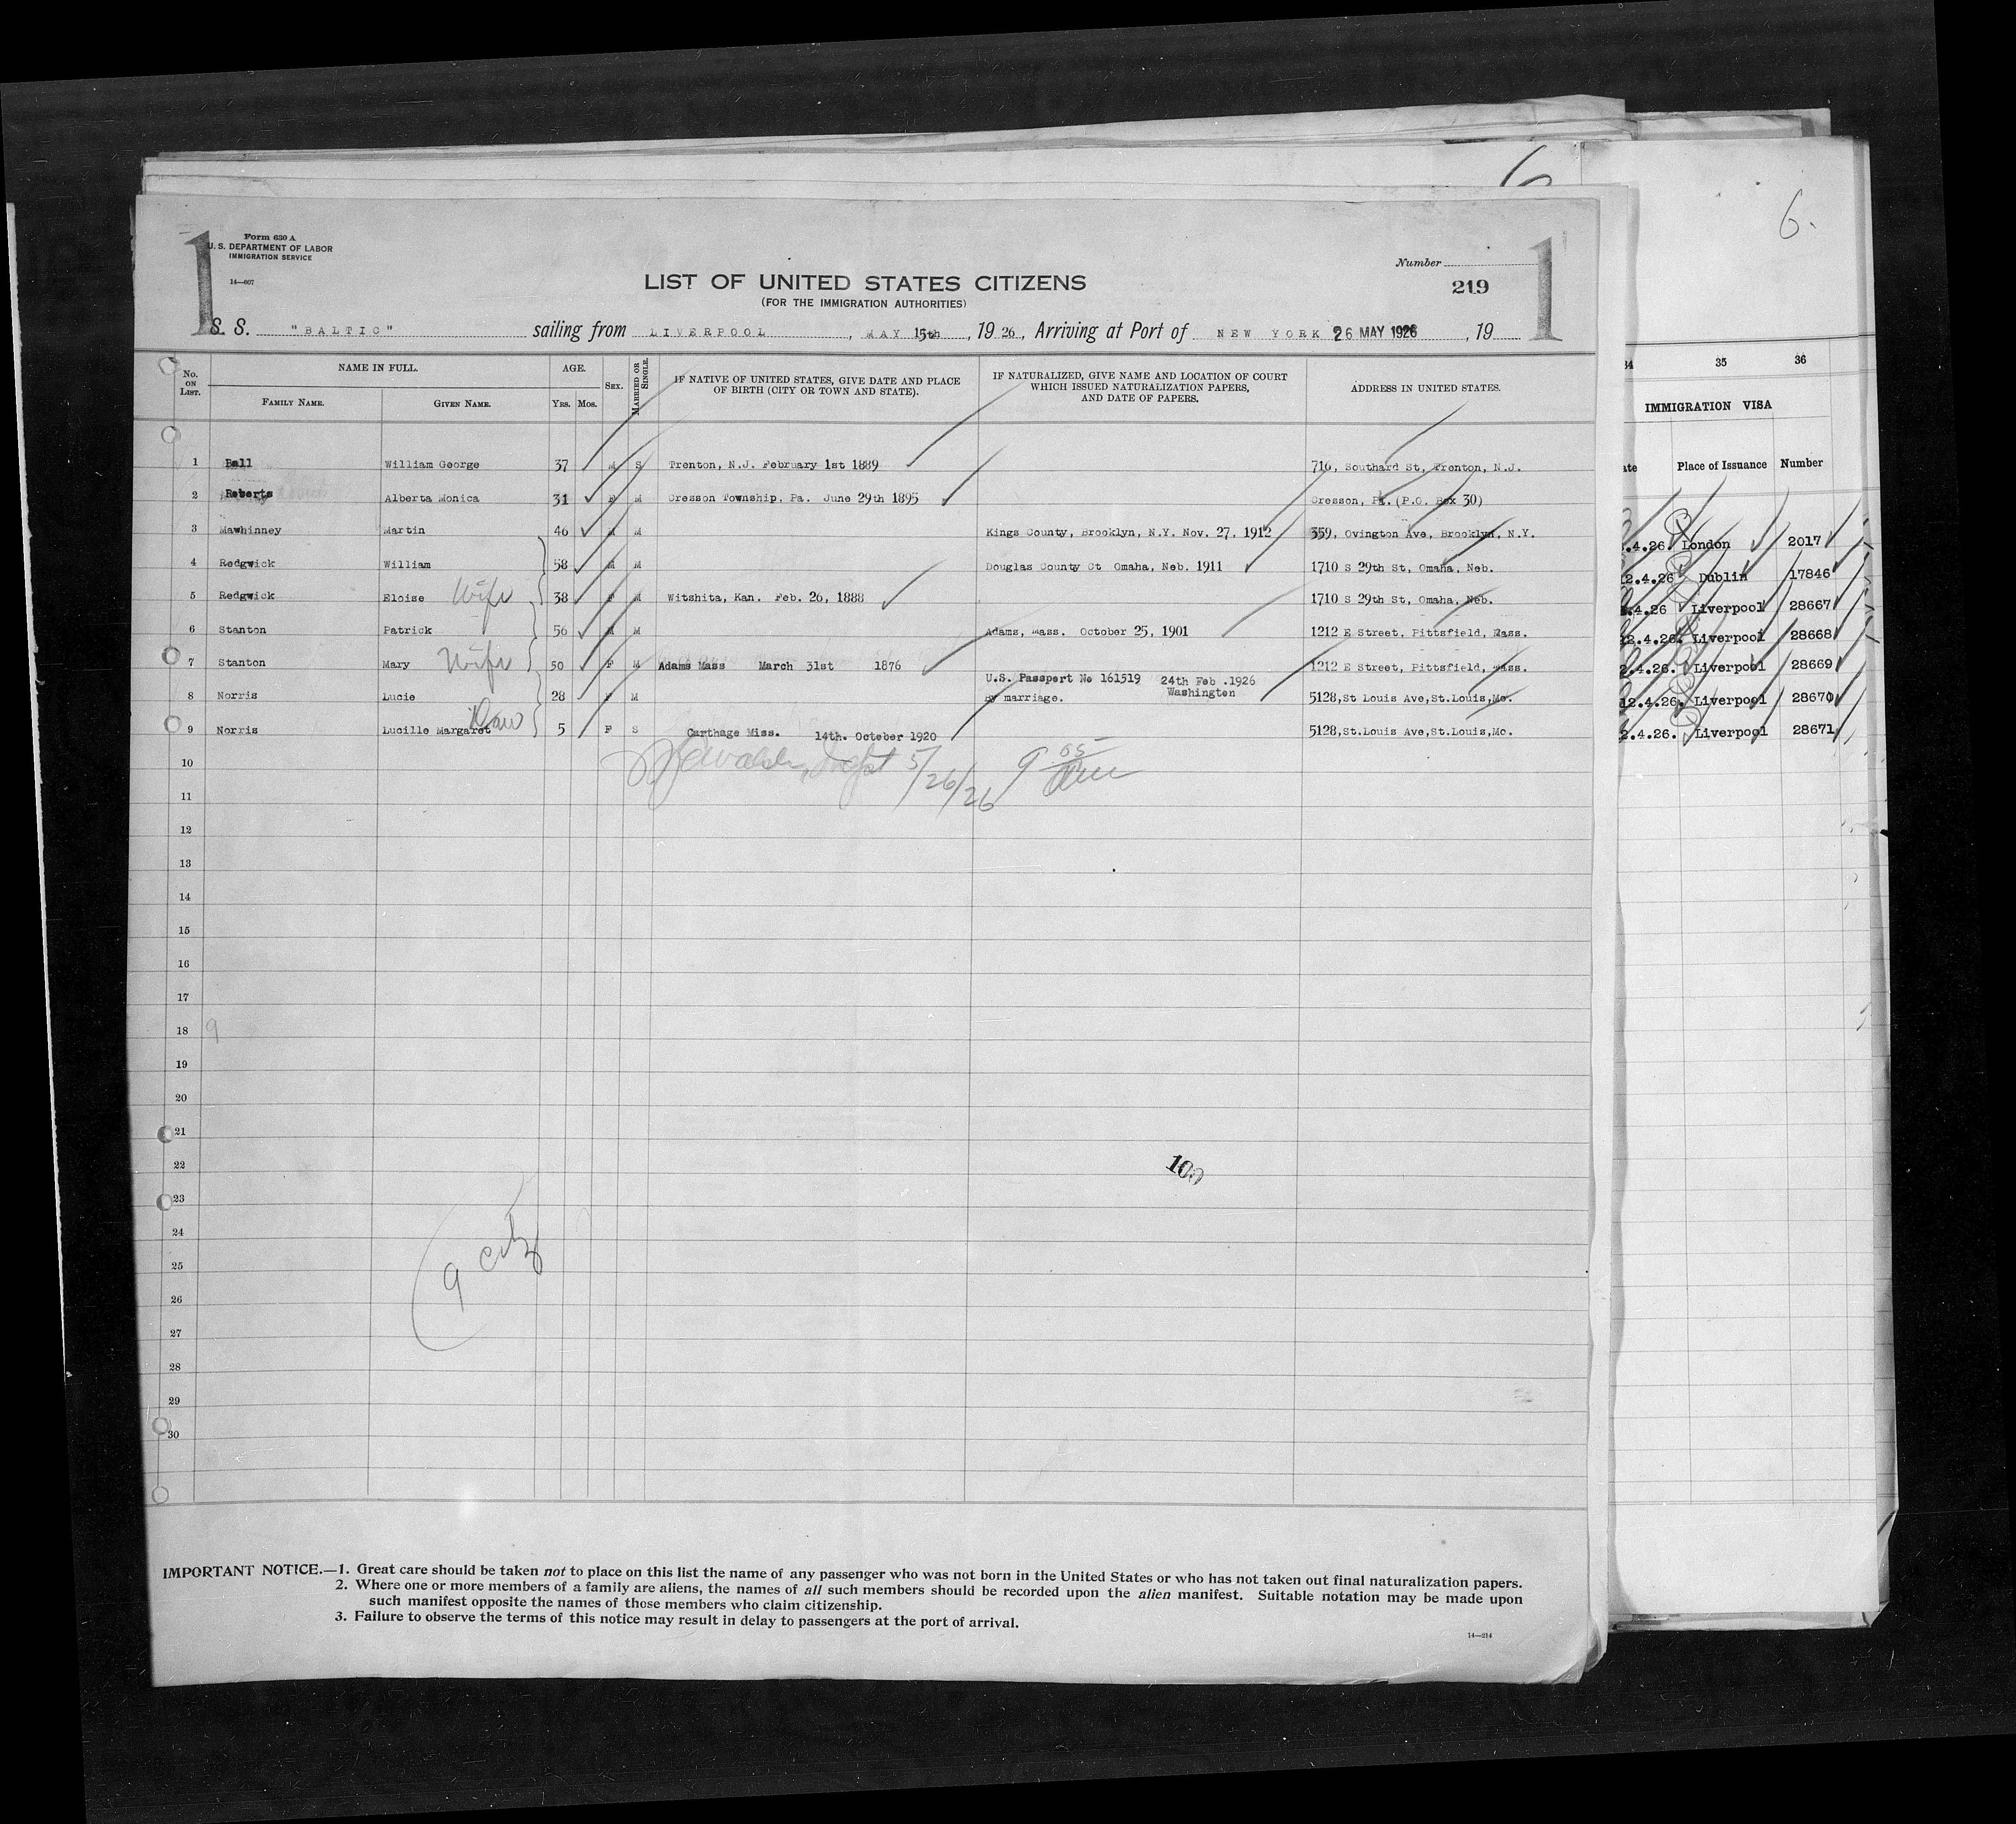 6
6.
1
Form 630 A
U. S. DEPARTMENT OF LABOR
IMMIGRATION SERVICE
14—607
Number
219
1
LIST OF UNITED STATES CITIZENS
(FOR THE IMMIGRATION AUTHORITIES)
S. S. "BALTIC" sailing from LIVERPOOL, MAY 15th, 19 26, Arriving at Port of NEW YORK 26 MAY 1926, 19
No. ON LIST. NAME IN FULL. AGE. SEX. MARRIED OR SINGLE. IF NATIVE OF UNITED STATES, GIVE DATE AND PLACE OF BIRTH (CITY OR TOWN AND STATE). IF NATURALIZED, GIVE NAME AND LOCATION OF COURT WHICH ISSUED NATURALIZATION PAPERS, AND DATE OF PAPERS. ADDRESS IN UNITED STATES.
FAMILY NAME. GIVEN NAME. YRS. MOS.
1 Ball William George 37 M S Trenton, N.J. February 1st 1889 716, Southard St, Trenton, N.J.
2 Roberts Alberta Monica 31 F M Cresson Township, Pa. June 29th 1895 Cresson, Pa. (P.O. Box 30)
3 Mawhinney Martin 46 M M Kings County, Brooklyn, N.Y. Nov. 27, 1912 359, Ovington Ave, Brooklyn, N.Y.
4 Redgwick William 58 M M Douglas County Ct Omaha, Neb. 1911 1710 S 29th St, Omaha, Neb.
5 Redgwick Eloise Wife 38 F M Witshita, Kan. Feb. 26, 1888 1710 S 29th St, Omaha, Neb.
6 Stanton Patrick 56 M M Adams, Mass. October 25, 1901 1212 E Street, Pittsfield, Mass.
7 Stanton Mary Wife 50 F M Adams Mass March 31st 1876 1212 E Street, Pittsfield, Mass.
8 Norris Lucie 28 F M U.S. Passport No 161519 24th Feb .1926 Washington by marriage. 5128,St Louis Ave,St.Louis,Mo.
9 Norris Lucille Margaret Dau 5 F S Carthage Miss. 14th. October 1920 5128,St.Louis Ave,St.Louis,Mo.
10 Inspt 5/26/26 9 05
11
12
13
14
15
16
17
18 9
19
20
21
22
100
23
24
25
9 city
26
27
28
29
30
IMPORTANT NOTICE.—1. Great care should be taken not to place on this list the name of any passenger who was not born in the United States or who has not taken out final naturalization papers.
2. Where one or more members of a family are aliens, the names of all such members should be recorded upon the alien manifest. Suitable notation may be made upon
such manifest opposite the names of those members who claim citizenship.
3. Failure to observe the terms of this notice may result in delay to passengers at the port of arrival.
14—214
34 35 36
IMMIGRATION VISA
ate Place of Issuance Number
.4.26. London 2017
12.4.26 Dublin 17846
.4.26 Liverpool 28667
12.4.26. Liverpool 28668
2.4.26. Liverpool 28669
12.4.26. Liverpool 28670
2.4.26. Liverpool 28671